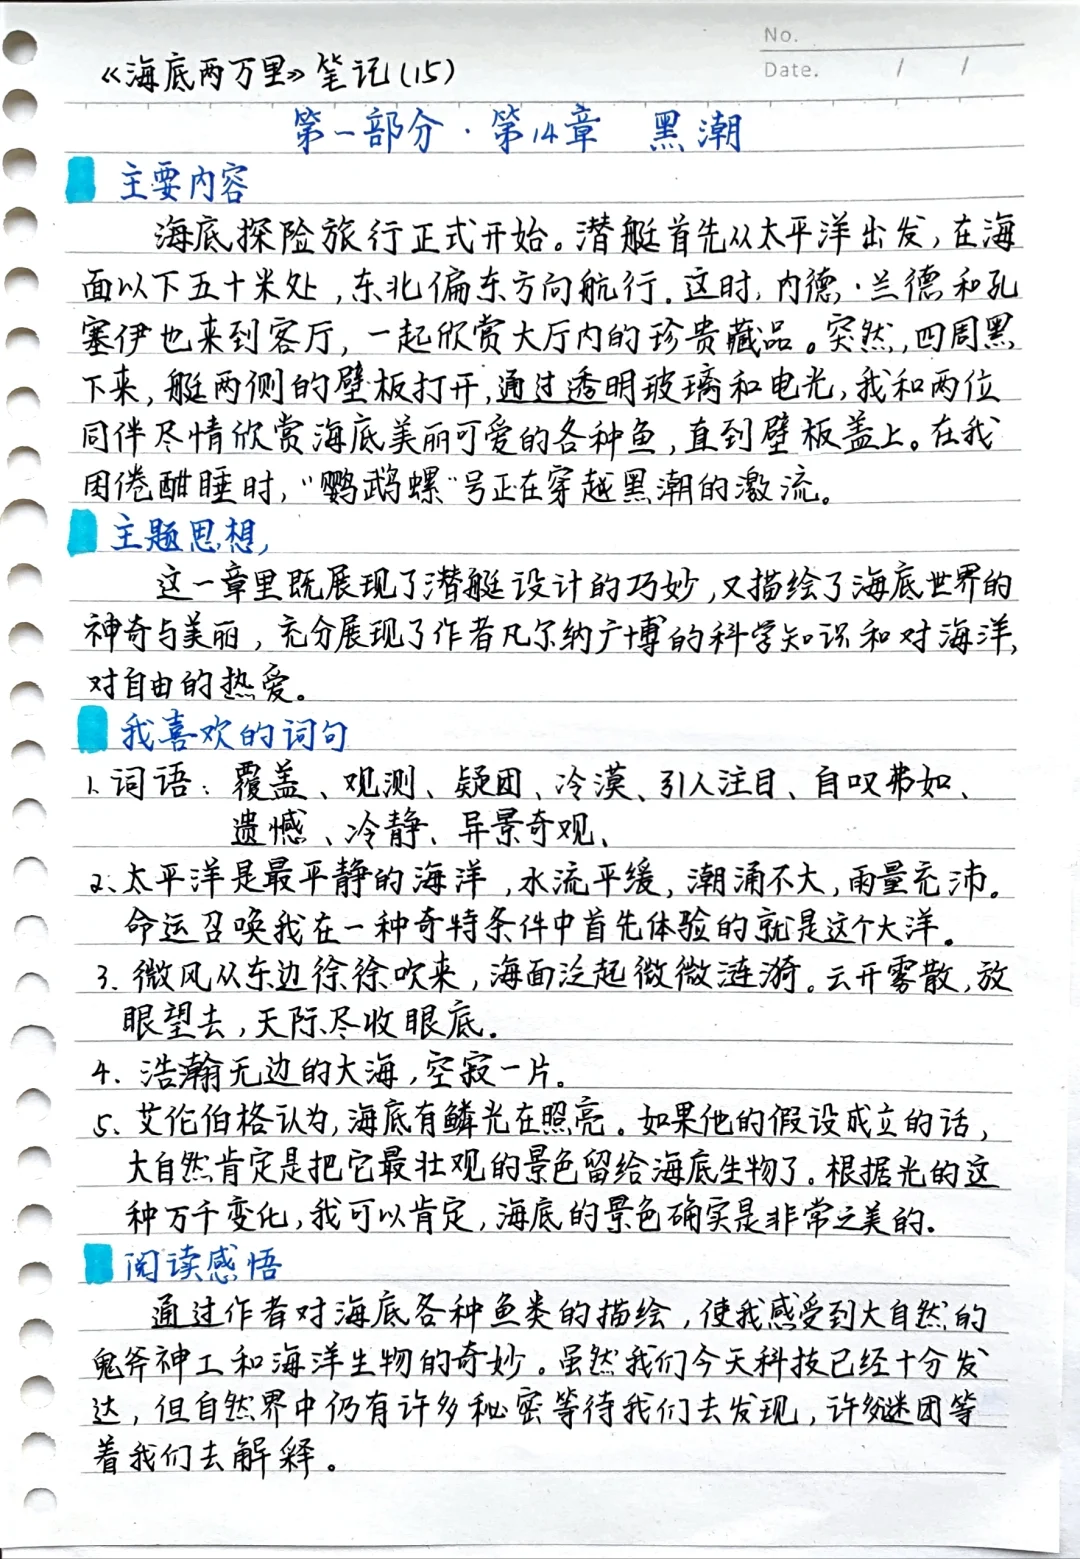 No.
Date. / /
《海底两万里》笔记(15)
第一部分·第14章 黑潮
主要内容
海底探险旅行正式开始。潜艇首先从太平洋出发,在海
面以下五十米处,东北偏东方向航行。这时,内德,·兰德和孔
塞伊也来到客厅,一起欣赏大厅内的珍贵藏品。突然,四周黑
下来,艇两侧的壁板打开,通过透明玻璃和电光,我和两位
同伴尽情欣赏海底美丽可爱的各种鱼,直到壁板盖上。在我
困倦酣睡时,“鹦鹉螺”号正在穿越黑潮的激流。
主题思想,
这一章里既展现了潜艇设计的巧妙,又描绘了海底世界的
神奇与美丽,充分展现了作者凡尔纳广博的科学知识和对海洋,
对自由的热爱。
我喜欢的词句
1、词语:覆盖、观测、疑团、冷漠、引人注目、自叹弗如、
遗憾、冷静、异景奇观、
2、太平洋是最平静的海洋,水流平缓,潮涌不大,雨量充沛。
命运召唤我在一种奇特条件中首先体验的就是这个大洋。
3、微风从东边徐徐吹来,海面泛起微微涟漪。云开雾散,放
眼望去,天际尽收眼底。
4、浩瀚无边的大海,空寂一片。
5、艾伦伯格认为,海底有鳞光在照亮。如果他的假设成立的话,
大自然肯定是把它最壮观的景色留给海底生物了。根据光的这
种万千变化,我可以肯定,海底的景色确实是非常之美的。
阅读感悟
通过作者对海底各种鱼类的描绘,使我感受到大自然的
鬼斧神工和海洋生物的奇妙。虽然我们今天科技已经十分发
达,但自然界中仍有许多秘密等待我们去发现,许多谜团等
着我们去解释。